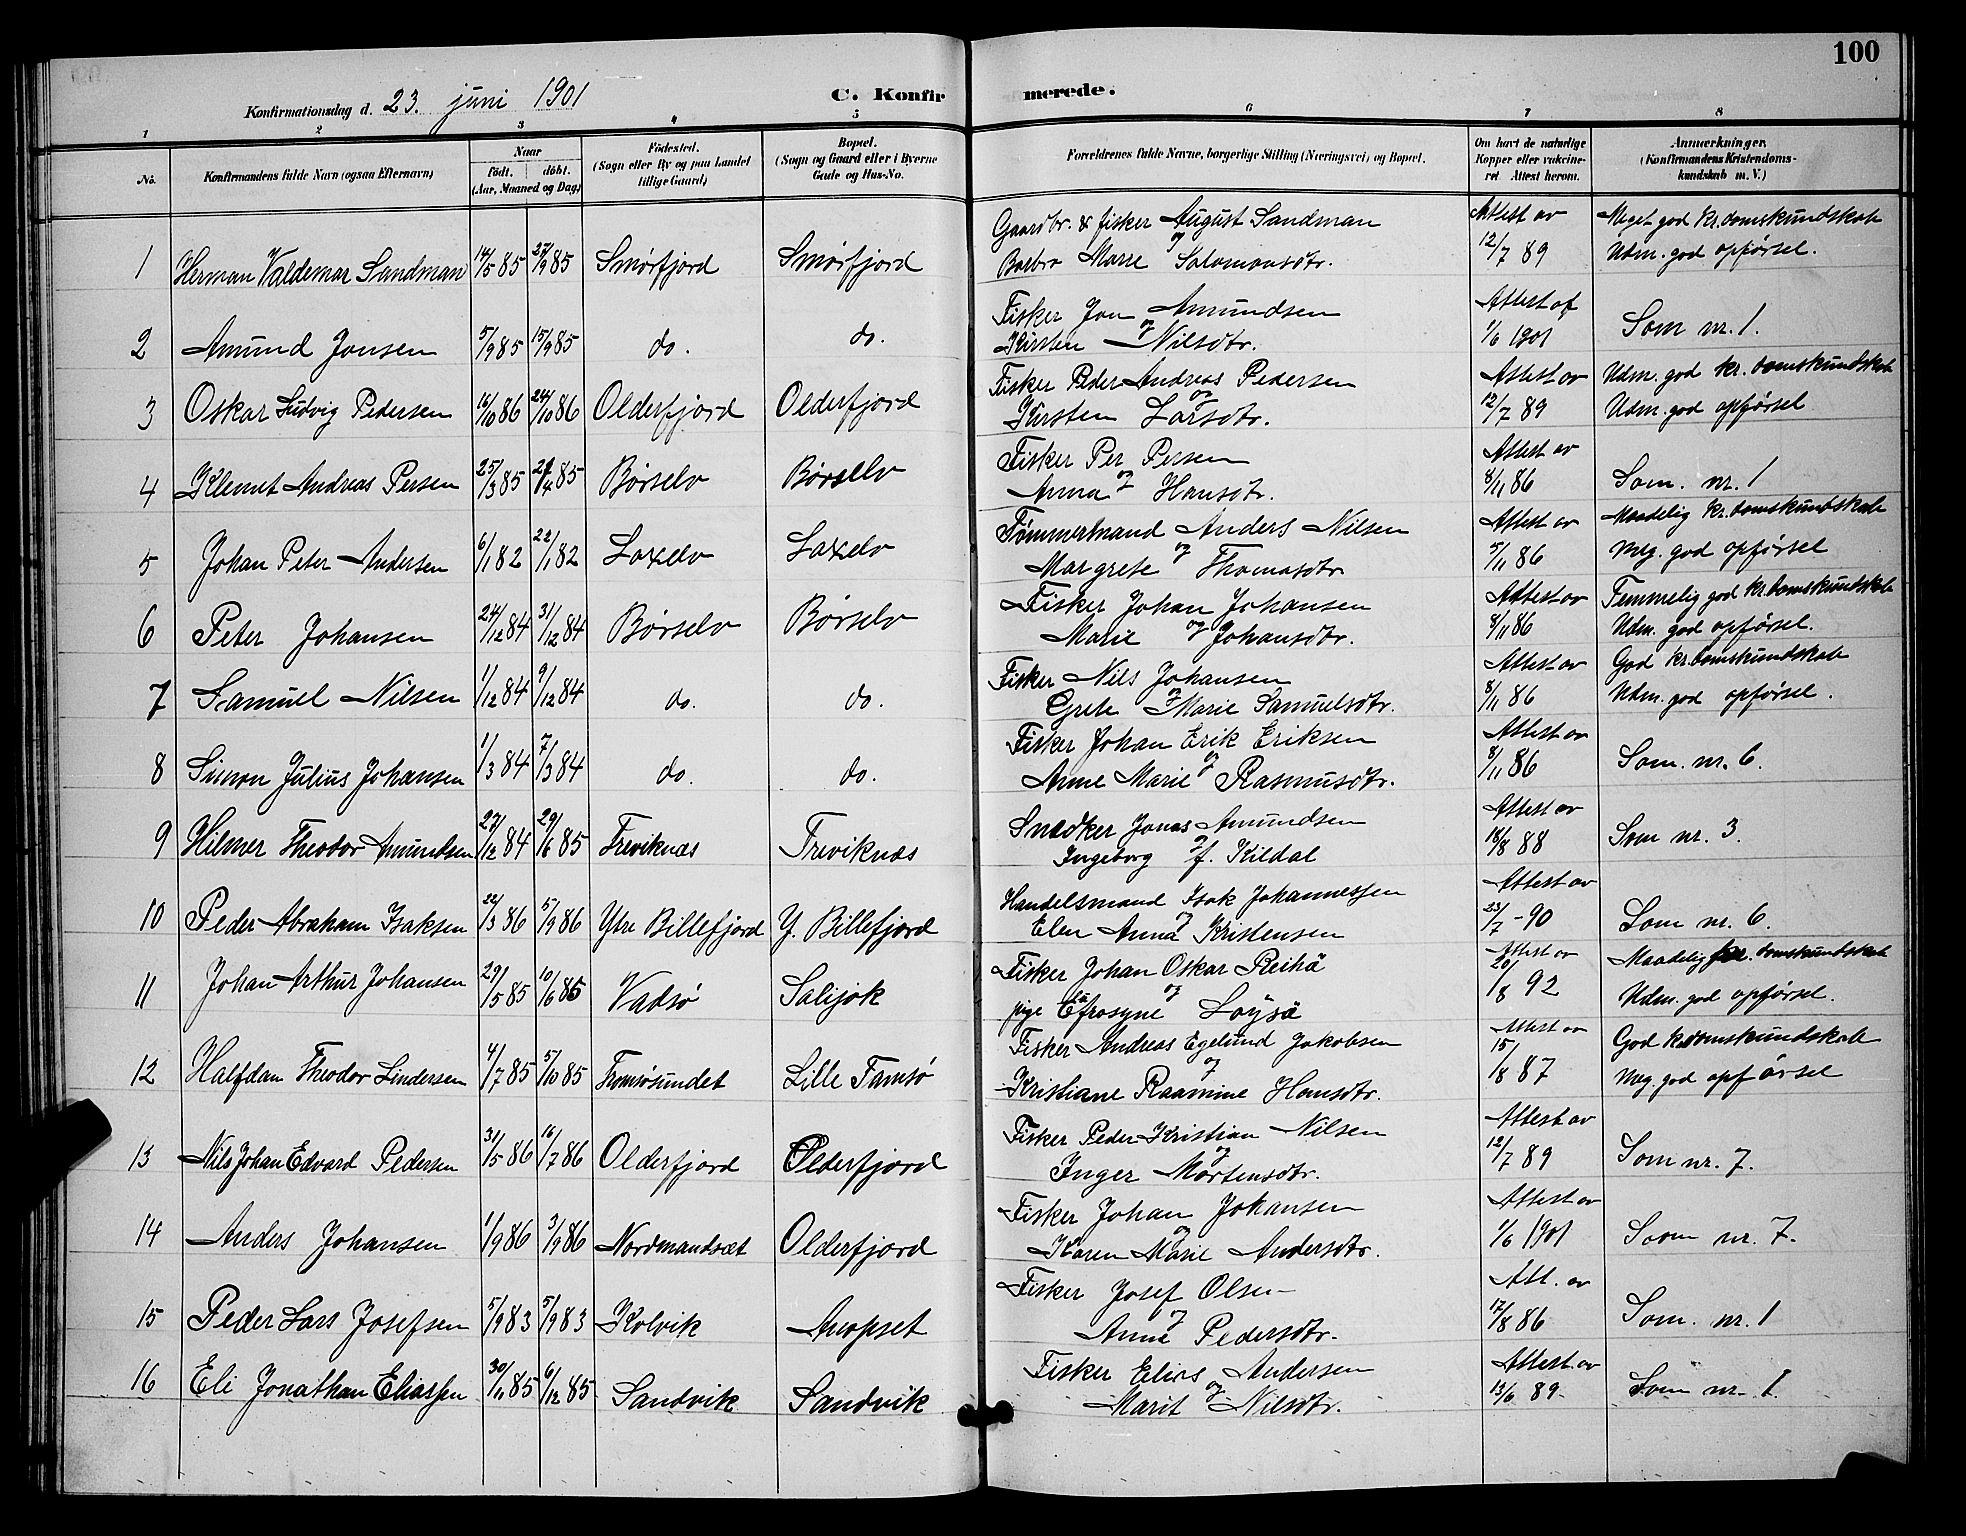 100
Konfirmationsdag d. 23. juni 1901
C. Konfirmerede.
1 2 3 4 5 6 7 8
No.
Konfirmandens fulde Navn (ogsaa Efternavn)
Naar
födt. döbt.
(Aar, Maaned og Dag)
Födested.
(Sogn eller By og paa Landet
tillige Gaard)
Bopæl.
(Sogn og Gaard eller i Byerne
Gade og Hus-No.
Forældrenes fulde Navne, borgerlige Stilling (Næringsvei) og Bopæl.
Om havt de naturlige
Kopper eller vakcine-
ret Attest herom.
Anmærkninger.
(Konfirmandens Kristendoms-
kundskab m. V.)
Gaardbr. & fisker August Sandman Attest av Meget god kr.domskundskab
1 Herman Valdemar Sandman 14/5 85 27/9 85 Smørfjord Smørfjord og Barbro Marie Salomonsdtr. 12/7 89 Udm. god opførsel.
Fisker Jon Amundsen Attest af
2 Amund Jonsen 5/9 85 15/9 85 do. do. og Kirsten Nilsdtr. 1/6 1901 Som nr. 1.
Fisker Peder Andreas Pedersen Attest av Udm. god kr. domskundskab
3 Oskar Ludvig Pedersen 16/10 86 24/10 86 Olderfjord Olderfjord og Kirsten Larsdtr. 12/7 89 Udm. god opførsel
Fisker Per Persen Attest av
4 Klemet Andreas Persen 25/3 85 21/4 85 Børselv Børselv og Anna Hansdtr. 8/11 86 Som. nr. 1
Tømmermand Anders Nilsen Attest av Maadelig kr.domskundskab
5 Johan Peter Andersen 6/1 82 22/1 82 Laxelv Laxelv og Margrete Thomasdtr 5/11 86 Meg. god opførsel
Fisker Johan Johansen Attest av Temmelig god kr.domskundskab
6 Peter Johansen 24/12 84 31/12 84 Børselv Børselv Marie og Johansdtr. 8/11 86 Udm. god opførsel.
Fisker Nils Johansen Attest av God kr.domskundskab
7 Samuel Nilsen 1/12 84 9/12 84 do. do. og Grete Marie Samuelsdtr. 8/11 86 Udm. god opførsel.
Fisker Johan Erik Eriksen Attest av
8 Simon Julius Johansen 1/3 84 7/3 84 do. do. og Anne Marie Rasmusdtr. 8/11 86 Som. nr. 6.
Snedker Jonas Amundsen Attest av
9 Hilmer Theodor Amundsen 27/12 84 29/6 85 Treviknæs Treviknæs og Ingeborg f. Kildal 18/8 88 Som nr. 3.
Handelsmand Isak Johannessen Attest av
10 Peder Abraham Isaksen 22/3 86 5/9 86 Ytre Billefjord Y. Billefjord og Elen Anna Kristensen 23/7 - 90 Som nr. 6.
Fisker Johan Oskar Reihä Attest av Maadelig kr. domskundskab
11 Johan Arthur Johansen 29/5 85 10/6 85 Vadsø Salijok og pige Eufrosyne Löysä 20/8 92 Udm. god opførsel.
Fisker Andreas Egelund Jakobsen Attest av God kr.domskundskab
12 Halfdan Theodor Lindersen 4/7 85 5/10 85 Tamsøsundet Lille Tamsø og Kristiane Raamine Hansdtr. 15/8 87 Meg. god opførsel
Fisker Peder Kristian Nilsen Attest av
13 Nils Johan Edvard Pedersen 31/5 86 16/7 86 Olderfjord Olderfjord og Inger Mortensdtr. 12/7 89 Som nr. 7.
Fisker Johan Johansen Attest av
14 Anders Johansen 1/9 86 3/9 86 Nordmandsæt Olderfjord og Karen Marie Andersdtr. 1/6 1901 Som nr. 7.
Fisker Josef Olsen Att. av
15 Peder Lars Josefsen 5/9 83 5/9 83 Kolvik Anopset og Anna Pedersdtr. 17/8 86 Som. nr. 1
Fisker Elias Andersen Attest av
16 Eli Jonathan Eliassen 30/11 85 6/12 85 Sandvik Sandvik og Marit Nilsdtr. 13/6 89 Som nr. 1.